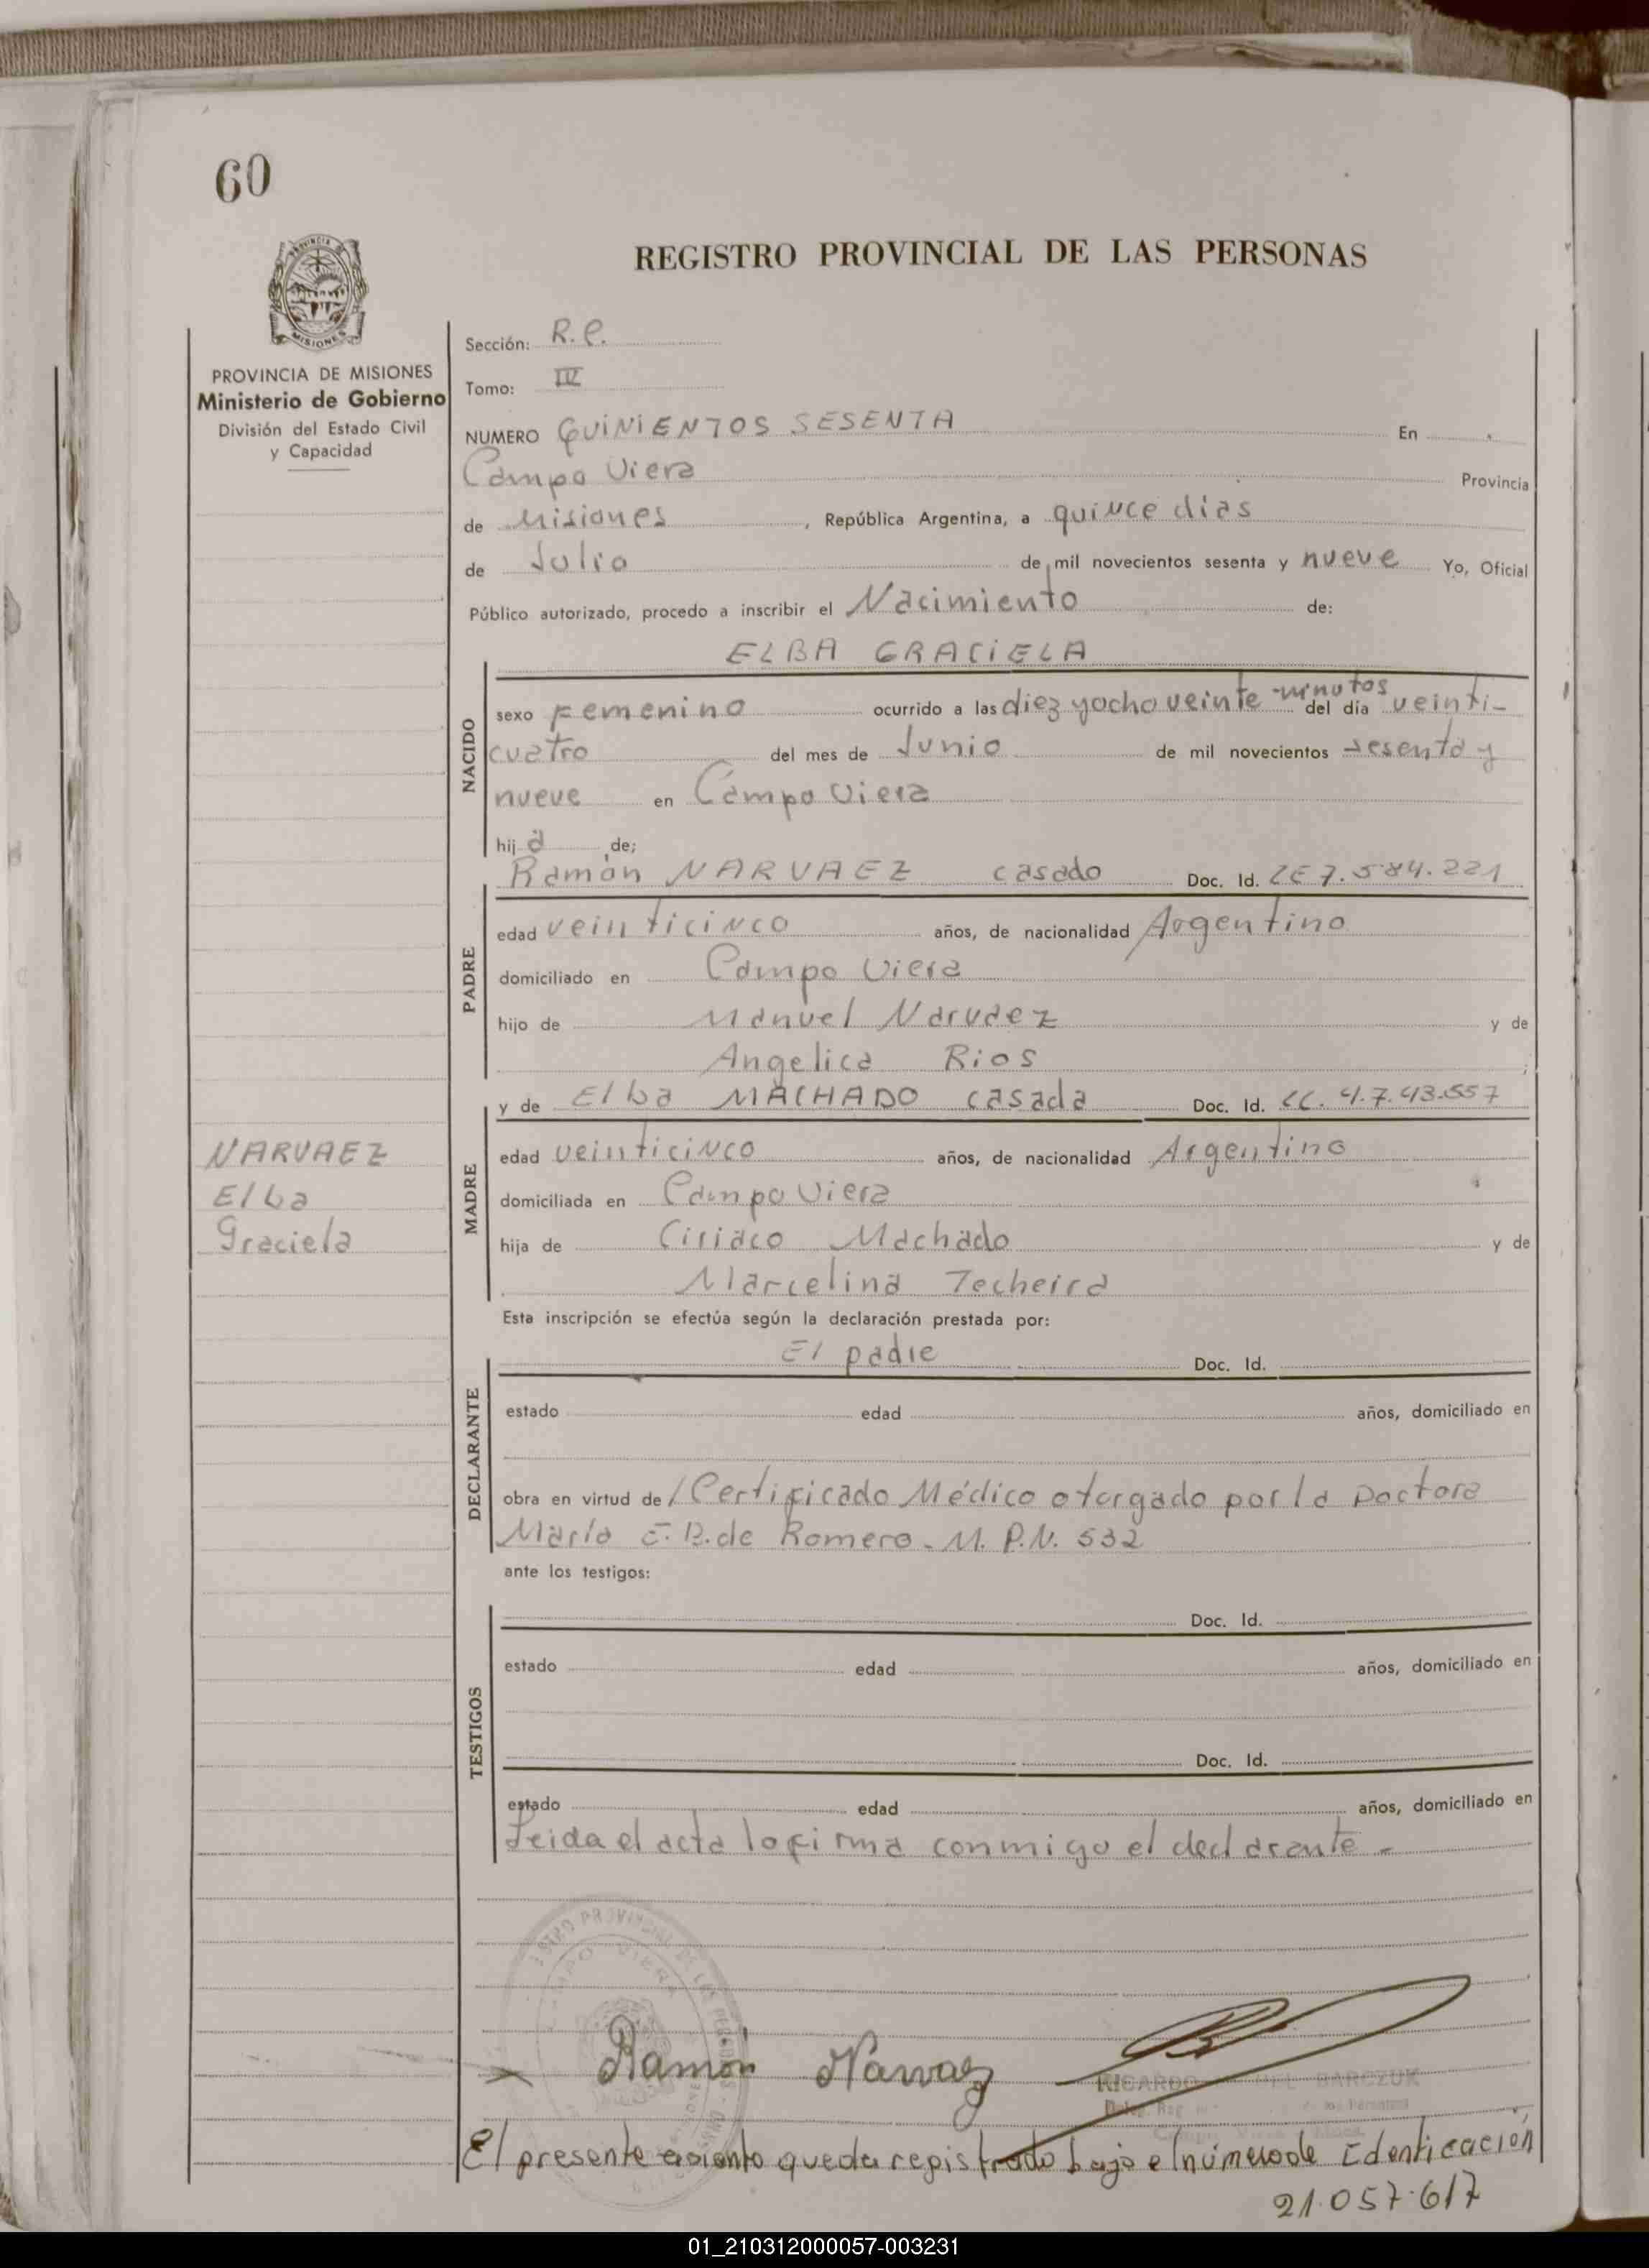 60
REGISTRO PROVINCIAL DE LAS PERSONAS
PROVINCIA DE MISIONES
Ministerio de Gobierno
División del Estado Civil
y Capacidad
Sección: R.C.
Tomo: III
NUMERO QUINIENTOS SESENTA En
Campo Viera Provincia
de Misiones, República Argentina, a quince dias
de Julio de mil novecientos sesenta y nueve Yo, Oficial
Público autorizado, procedo a inscribir el Nacimiento de:
ELBA GRACIELA
NACIDO
sexo Femenino ocurrido a las diez y ocho veinte minutos del día veinti-
cuatro del mes de Junio de mil novecientos sesenta y
nueve en Campo Viera
hija de;
Ramón NARVAEZ casado Doc. Id. 7.584.221
PADRE
edad veinticinco años, de nacionalidad Argentino
domiciliado en Campo Viera
hijo de Manuel Narvaez y de
Angelica Rios;
y de Elba MACHADO casada Doc. Id. 4.7.43.557
MADRE
edad veinticinco años, de nacionalidad Argentino
domiciliada en Campo Viera
hija de Ciriaco Machado y de
Marcelina Techeira
NARVAEZ
Elba
Graciela
Esta inscripción se efectúa según la declaración prestada por:
El padre Doc. Id.
DECLARANTE
estado edad años, domiciliado en
obra en virtud de/Certificado Médico otorgado por la Doctora
María E. B. de Romero - M. P. N. 532
ante los testigos:
TESTIGOS
Doc. Id.
estado edad años, domiciliado en
Doc. Id.
estado edad años, domiciliado en
Leida el acta lo firma conmigo el declarante -
Ramón Narvaez
RICARDO BARCZUK
El presente asiento queda registrado bajo el número de Identicación
21.057.617
01_210312000057-003231